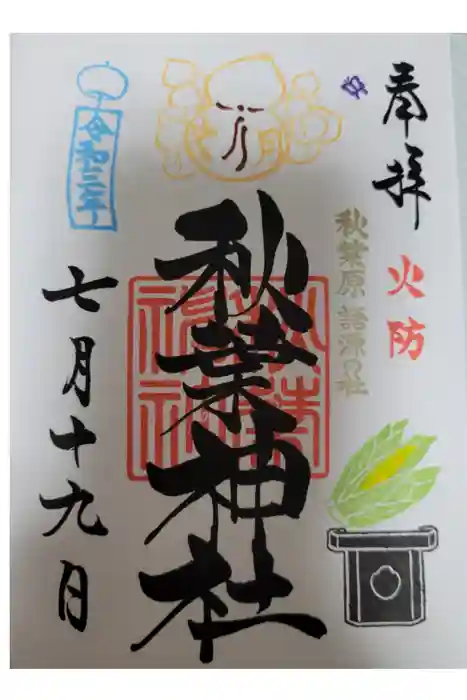 奉拝
火防
秋葉原語源の社
秋葉神社
令和三年
七月十九日